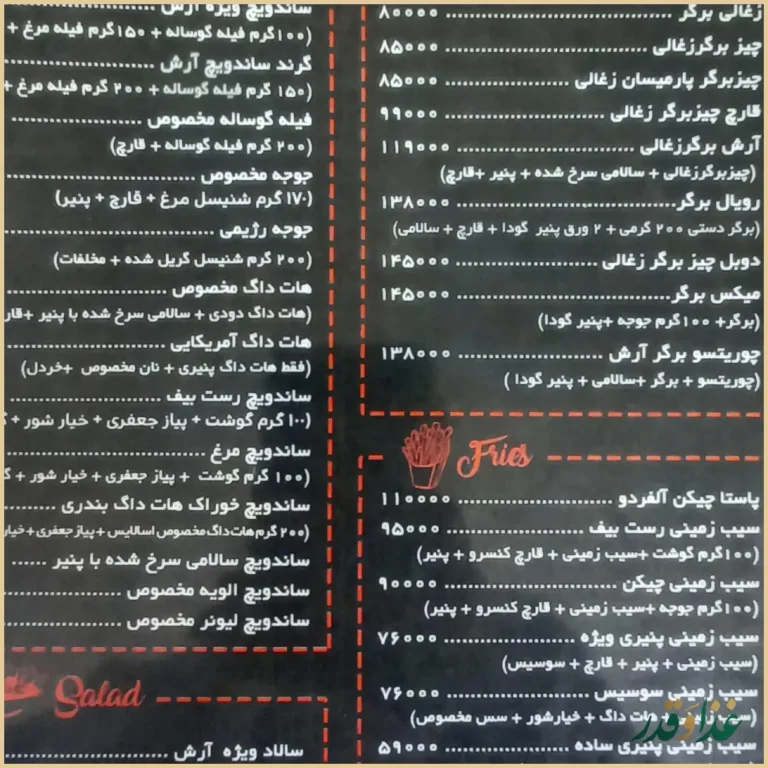 زغالی برگر ........ ۸۰۰۰۰
چیز برگرزغالی ........ ۸۵۰۰۰
چیزبرگر پارمیسان زغالی ........ ۸۵۰۰۰
قارچ چیزبرگر زغالی ........ ۹۹۰۰۰
آرش برگرزغالی ........ ۱۱۹۰۰۰
(چیزبرگرزغالی + سالامی سرخ شده + پنیر +قارچ)
رویال برگر ........ ۱۳۸۰۰۰
(برگر دستی ۲۰۰ گرمی + ۲ ورق پنیر گودا + قارچ + سالامی)
دوبل چیز برگر زغالی ........ ۱۴۵۰۰۰
میکس برگر ........ ۱۴۵۰۰۰
(برگر+ ۱۰۰گرم جوجه +پنیر گودا)
چوریتسو برگر آرش ........ ۱۳۸۰۰۰
(چوریتسو + برگر +سالامی + پنیر گودا )
Fries
پاستا چیکن آلفردو ........ ۱۱۰۰۰۰
سیب زمینی رست بیف ........ ۹۵۰۰۰
(۱۰۰گرم گوشت +سیب زمینی + قارچ کنسرو + پنیر)
سیب زمینی چیکن ........ ۹۰۰۰۰
(۱۰۰گرم جوجه +سیب زمینی + قارچ کنسرو + پنیر)
سیب زمینی پنیری ویژه ........ ۷۶۰۰۰
(سیب زمینی + پنیر + قارچ + سوسیس)
سیب زمینی سوسیس ........ ۷۶۰۰۰
(سیب ات داگ + خیارشور + سس مخصوص)
سیب زمینی پنیری ساده ........ ۵۹۰۰۰
غذا و قدر
ساندویچ ویژه آرش ........
(۱۰۰گرم فیله گوساله + ۱۵۰گرم فیله مرغ +
گرند ساندویچ آرش ........
(۱۵۰ گرم فیله گوساله + ۲۰۰ گرم فیله مرغ +
فیله گوساله مخصوص ........
(۲۰۰ گرم فیله گوساله + قارچ)
جوجه مخصوص ........
(۱۷۰ گرم شنیسل مرغ + قارچ + پنیر)
جوجه رژیمی ........
(۲۰۰ گرم شنیسل گریل شده + مخلفات)
هات داگ مخصوص ........
(هات داگ دودی + سالامی سرخ شده با پنیر +قار
هات داگ آمریکایی ........
(فقط هات داگ پنیری + نان مخصوص +خردل)
ساندویچ رست بیف ........
(۱۰۰ گرم گوشت + پیاز جعفری + خیار شور +
ساندویچ مرغ ........
(۱۰۰ گرم گوشت + پیاز جعفری + خیار شور +
ساندویچ خوراک هات داگ بندری ........
(۲۰۰ گرم هات داگ مخصوص اسلایس + پیاز جعفری + خیار
ساندویچ سالامی سرخ شده با پنیر ......
ساندویچ الویه مخصوص ........
ساندویچ لیونر مخصوص ........
Salad
سالاد ویژه آرش ........